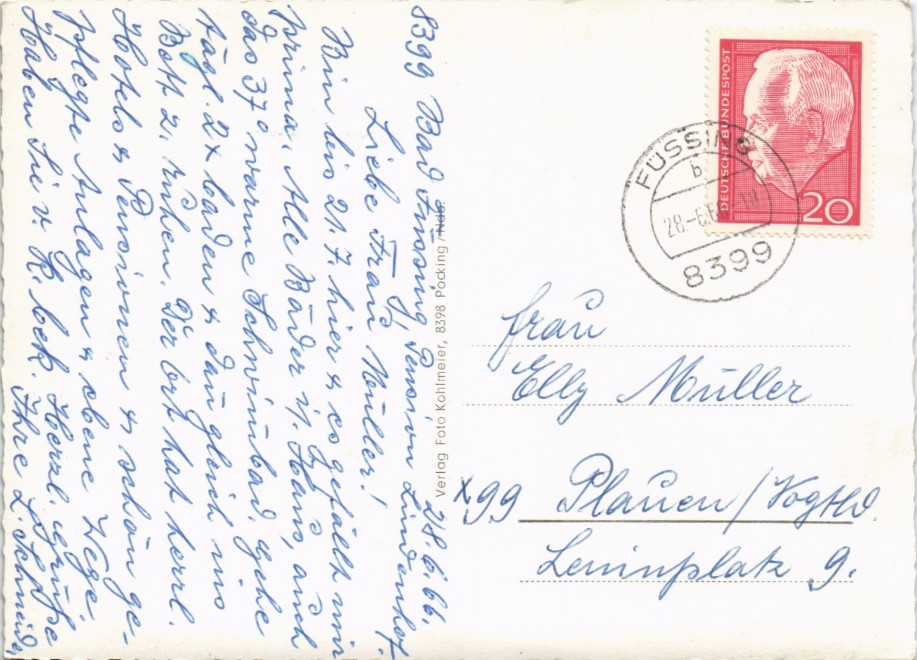 8399 Bad Füssing, Pension Lindenhof.
28.6.66.
Liebe Frau Müller!
Bin bis 21.7. hier & es gefällt mir
prima, Alle Bäder i/ Haus, auch
das 37° warme Schwimbad, gehe
tägl. 2x baden & dan gleich ins
Bett z. ruhen. Der Ort hat herrl.
Hotels & Pensionen & schön ge-
pflegte Anlagen & ebene Wege.
Haben Sie v. R. bek. Herzl. Grüße
Ihre L. Schneider
Verlag Foto Kohlmeier, 8398 Pocking/Ndb.
DEUTSCHE BUNDESPOST
20
FÜSSING
b
28.-6.6
8399
Frau
Elly Müller
X99 Plauen/Vogtld.
Leninplatz 9.